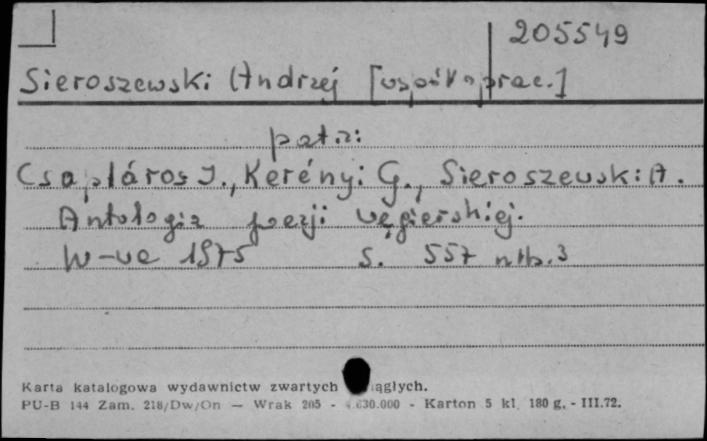 205549
Sieroszewski Andrzej [współoprac.]
patrz:
Csapláros I., Kerényi G., Sieroszewski A.
Antologia poezji węgierskiej.
W-wa 1975 s. 557 nlb. 3
Karta katalogowa wydawnictw zwartych ągłych.
PU-B 144 Zam. 218/Dw/On — Wrak 205 - 4.630.000 - Karton 5 kl. 180 g. - III.72.